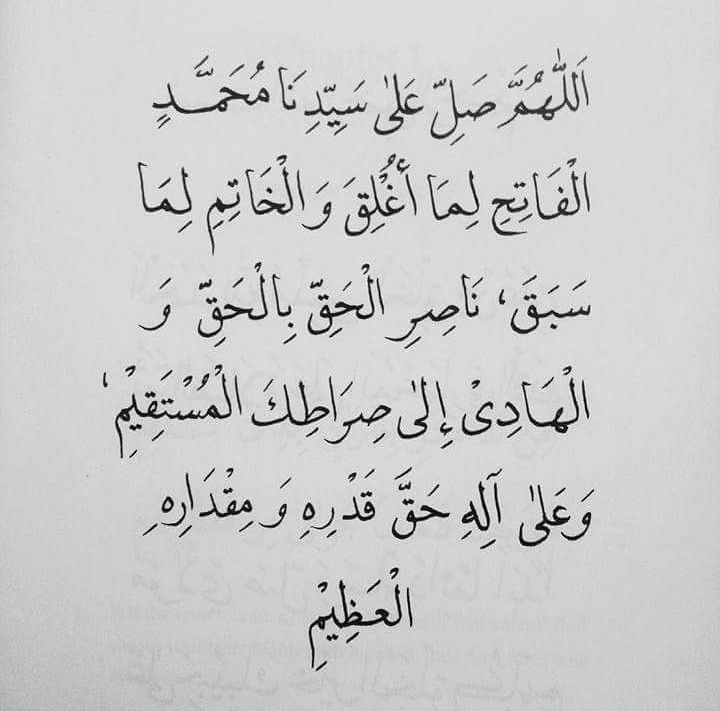 اَللّٰهُمَّ صَلِّ عَلىٰ سَيِّدِنَا مُحَمَّدٍ
الْفَاتِحِ لِمَا أُغْلِقَ وَالْخَاتِمِ لِمَا
سَبَقَ، نَاصِرِ الْحَقِّ بِالْحَقِّ وَ
الْهَادِيْ إِلىٰ صِرَاطِكَ الْمُسْتَقِيْمِ،
وَعَلىٰ آلِهِ حَقَّ قَدْرِهِ وَ مِقْدَارِهِ
الْعَظِيْمِ